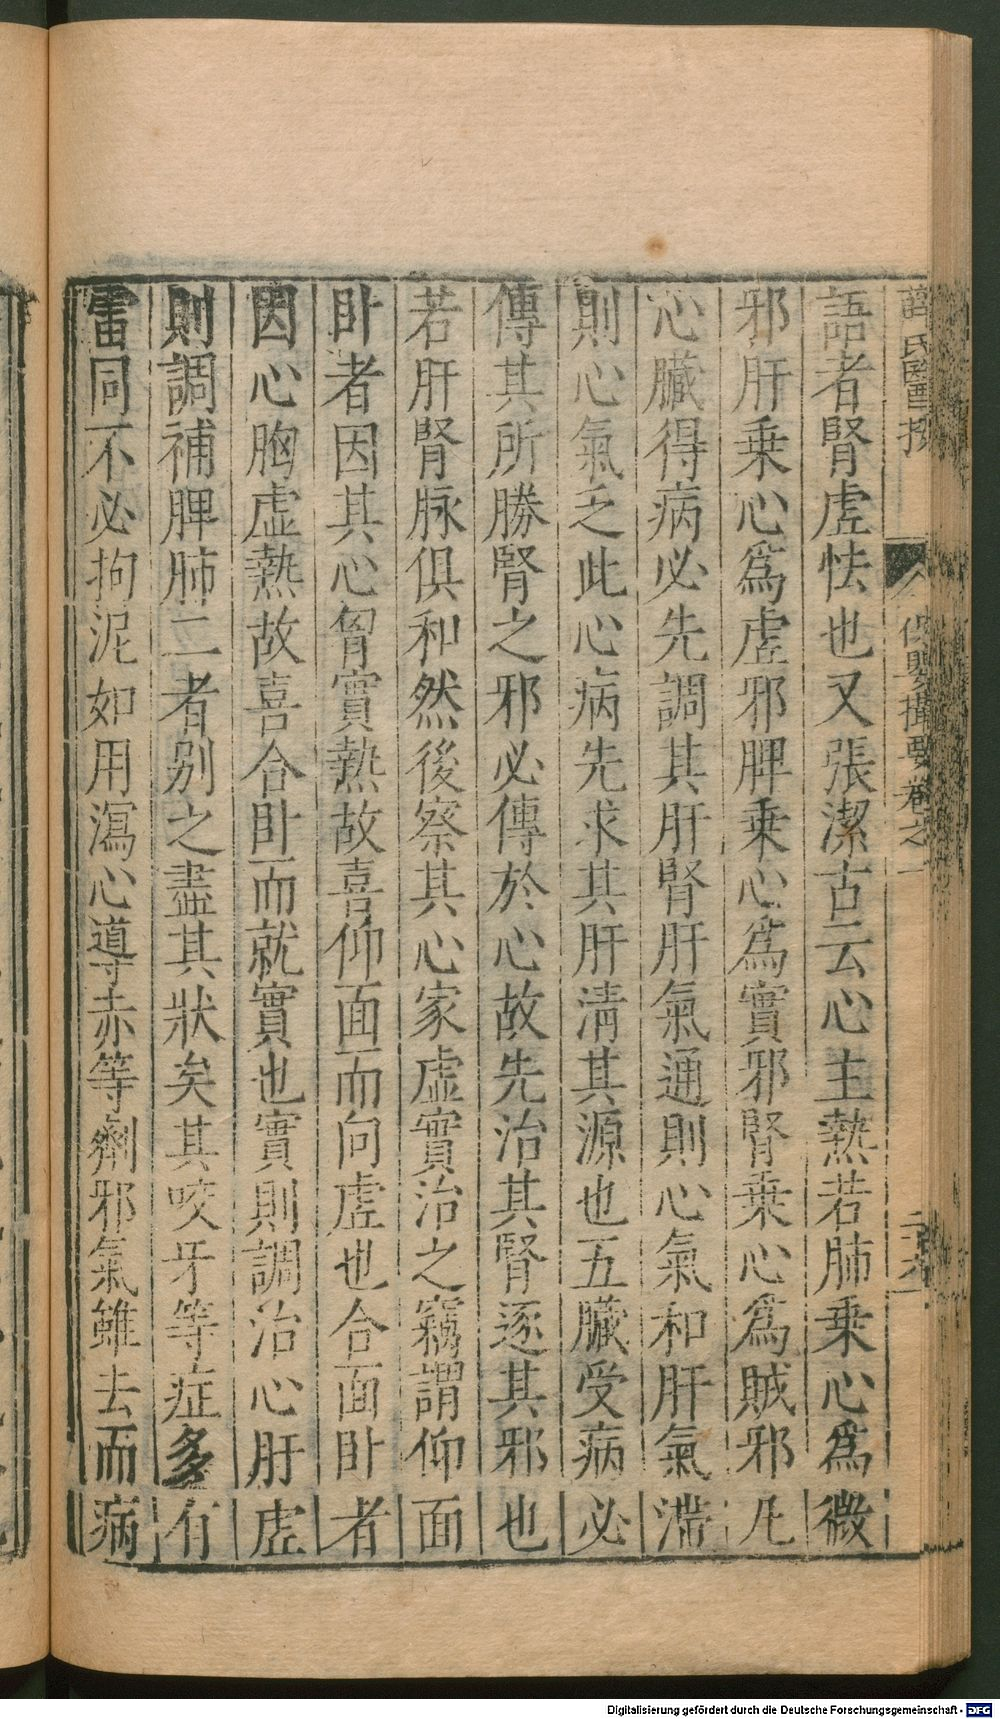 薛氏醫按
保嬰撮要卷之一
語者腎虗怯也又張潔古云心主熱若肺乗心爲微
邪肝乗心爲虗邪脾乗心爲實邪腎乗心爲賊邪凡
心臟得病必先調其肝腎肝氣通則心氣和肝氣滞
則心氣乏此心病先求其肝淸其源也五臟受病必
傳其所勝腎之邪必傳於心故先治其腎逐其邪也
若肝腎脉俱和然後察其心家虚實治之竊謂仰面
卧者因其心胷實熱故喜仰面而向虗也合面卧者
因心胸虚熱故喜合卧而就實也實則調治心肝虗
則調補脾肺二者别之盡其狀矣其咬牙等症多有
雷同不必拘泥如用瀉心導赤等劑邪氣雖去而病
Digitalisierung gefördert durch die Deutsche Forschungsgemeinschaft - DFG